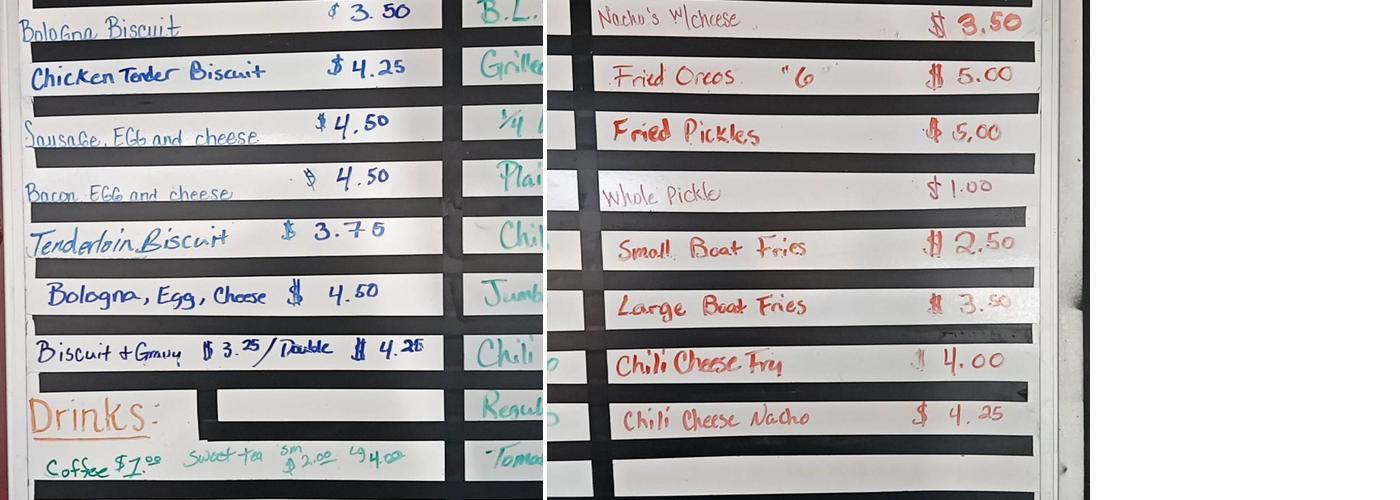 Bologna Biscuit $ 3.50
Chicken Tender Biscuit $ 4.25
Sausage, EGG and cheese $ 4.50
Bacon, EGG and cheese $ 4.50
Tenderloin Biscuit $ 3.75
Bologna, Egg, Cheese $ 4.50
Biscuit + Gravy $ 3.25 / Double $ 4.25
Drinks:
Coffee $1.00 Sweet tea sm $2.00 Lg 4.00
B.L.
1/4
Nacho's W/cheese $ 3.50
Fried Oreos "6" $ 5.00
Fried Pickles $ 5.00
Whole Pickle $ 1.00
Small Boat Fries $ 2.50
Large Boat Fries $ 3.50
Chili Cheese Fry $ 4.00
Chili Cheese Nacho $ 4.25